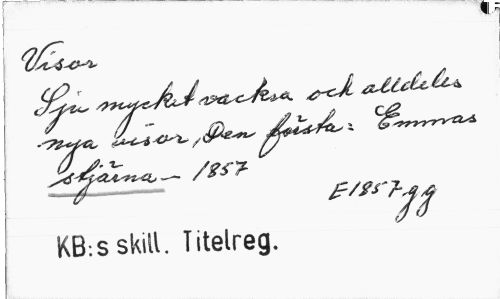 Visor
Sju mycket vackra och alldeles
nya visor, Den första: Emmas
stjärna – 1857
E1857.gg
KB:s skill. Titelreg.